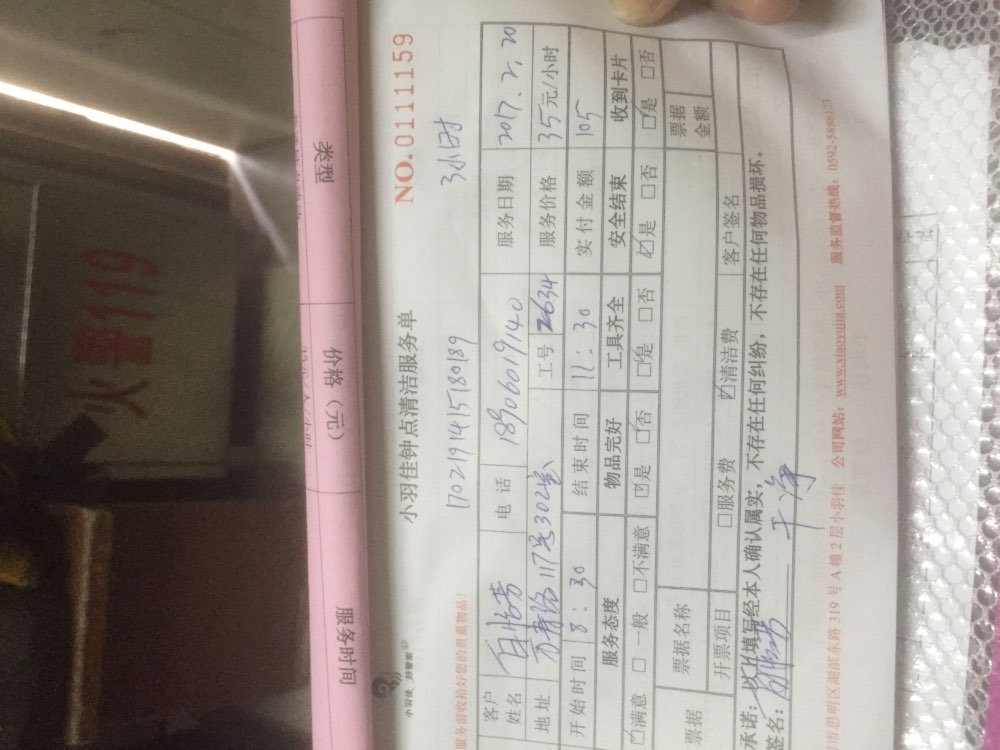 火警119
类型
价格（元）
服务时间
NO.01111159
小羽佳钟点清洁服务单
小羽佳 好管家
服务前收拾好您的贵重物品！
1702191415180189
3小时
客户姓名
电话 18906019140
服务日期 2017.2.20
地址
117号302室
工号 2634
服务价格 35元/小时
开始时间 8:30
结束时间 11:30
实付金额 105
服务态度 物品完好 工具齐全 安全结束 收到卡片
☑满意 □一般 □不满意 ☑是 □否 ☑是 □否 ☑是 □否 ☑是 □否
票据
票据名称
票据金额
开票项目 □服务费 ☑清洁费
客户签名
承诺：以上填写经本人确认属实，不存在任何纠纷，不存在任何物品损坏。
签名：
干净
市思明区湖滨东路319号A幢2层小羽佳 公司网站：www.xiaoyujia.com 服务监督热线：0592-5888123